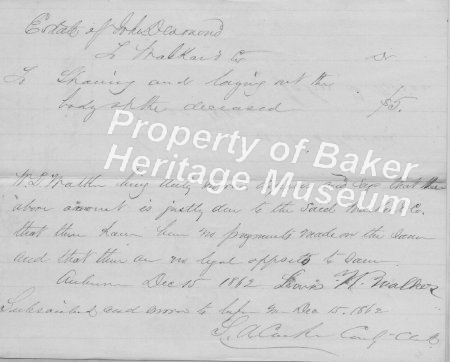 Estate of John Desmond
To Walker & Co Dr
To Shaving and laying out the
body of the deceased $5.
Property of Baker
Heritage Museum
W. L. Walker being duly sworn and says that the
above amount is justly due to the said Walker & Co.
that there have been no payments made on the same
and that there are no legal offsets to same
Auburn Dec 15 1862 Walker
Subscribed and sworn to before me Dec 15. 1862
Clerk